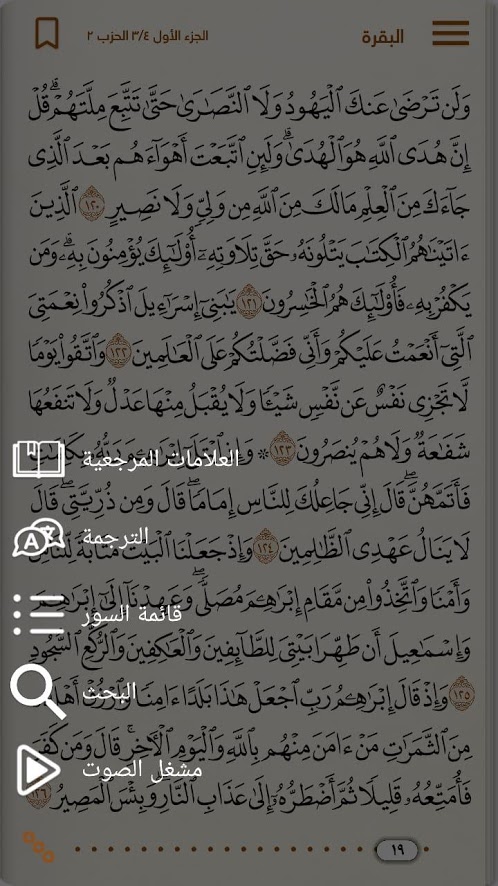 البقرة
الجزء الأول ٣/٤ الحزب ٢
وَلَن تَرْضَىٰ عَنكَ ٱلْيَهُودُ وَلَا ٱلنَّصَٰرَىٰ حَتَّىٰ تَتَّبِعَ مِلَّتَهُمْ ۗ قُلْ
إِنَّ هُدَى ٱللَّهِ هُوَ ٱلْهُدَىٰ ۗ وَلَئِنِ ٱتَّبَعْتَ أَهْوَآءَهُم بَعْدَ ٱلَّذِى
جَآءَكَ مِنَ ٱلْعِلْمِ مَا لَكَ مِنَ ٱللَّهِ مِن وَلِىٍّ وَلَا نَصِيرٍ ١٢٠ ٱلَّذِينَ
ءَاتَيْنَٰهُمُ ٱلْكِتَٰبَ يَتْلُونَهُۥ حَقَّ تِلَاوَتِهِۦٓ أُو۟لَٰٓئِكَ يُؤْمِنُونَ بِهِۦ ۗ وَمَن
يَكْفُرْ بِهِۦ فَأُو۟لَٰٓئِكَ هُمُ ٱلْخَٰسِرُونَ ١٢١ يَٰبَنِىٓ إِسْرَٰٓءِيلَ ٱذْكُرُوا۟ نِعْمَتِىَ
ٱلَّتِىٓ أَنْعَمْتُ عَلَيْكُمْ وَأَنِّى فَضَّلْتُكُمْ عَلَى ٱلْعَٰلَمِينَ ١٢٢ وَٱتَّقُوا۟ يَوْمًا
لَّا تَجْزِى نَفْسٌ عَن نَّفْسٍ شَيْـًٔا وَلَا يُقْبَلُ مِنْهَا عَدْلٌ وَلَا تَنفَعُهَا
شَفَٰعَةٌ وَلَا هُمْ يُنصَرُونَ ١٢٣ ۞ وَإِذِ ٱبْتَلَىٰٓ إِبْرَٰهِـۧمَ رَبُّهُۥ بِكَلِمَٰتٍ
العلامات المرجعية
فَأَتَمَّهُنَّ ۖ قَالَ إِنِّى جَاعِلُكَ لِلنَّاسِ إِمَامًا ۖ قَالَ وَمِن ذُرِّيَّتِى ۖ قَالَ
لَا يَنَالُ عَهْدِى ٱلظَّٰلِمِينَ ١٢٤ وَإِذْ جَعَلْنَا ٱلْبَيْتَ مَثَابَةً لِّلنَّاسِ
الترجمة
وَأَمْنًا وَٱتَّخِذُوا۟ مِن مَّقَامِ إِبْرَٰهِـۧمَ مُصَلًّى ۖ وَعَهِدْنَآ إِلَىٰٓ إِبْرَٰهِـۧمَ
قائمة السور
وَإِسْمَٰعِيلَ أَن طَهِّرَا بَيْتِىَ لِلطَّآئِفِينَ وَٱلْعَٰكِفِينَ وَٱلرُّكَّعِ ٱلسُّجُودِ
١٢٥ وَإِذْ قَالَ إِبْرَٰهِـۧمُ رَبِّ ٱجْعَلْ هَٰذَا بَلَدًا ءَامِنًا وَٱرْزُقْ أَهْلَهُۥ
البحث
مِنَ ٱلثَّمَرَٰتِ مَنْ ءَامَنَ مِنْهُم بِٱللَّهِ وَٱلْيَوْمِ ٱلْـَٔاخِرِ ۖ قَالَ وَمَن كَفَرَ
مشغل الصوت
فَأُمَتِّعُهُۥ قَلِيلًا ثُمَّ أَضْطَرُّهُۥٓ إِلَىٰ عَذَابِ ٱلنَّارِ ۖ وَبِئْسَ ٱلْمَصِيرُ ١٢٦
١٩